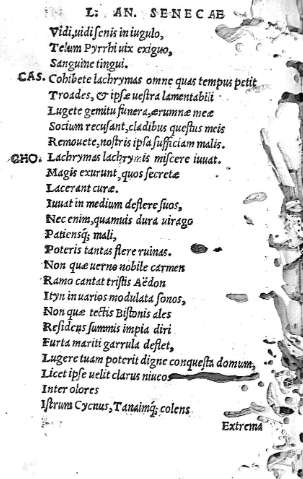 L. AN. SENECAE
Vidi, uidi senis in iugulo,
Telum Pyrrhi uix exiguo,
Sanguine tingui.
CAS. Cohibete lachrymas omne quas tempus petit
Troades, & ipsæ uestra lamentabili
Lugete gemitu funera, ærumnæ meæ
Socium recusant, cladibus questus meis
Remouete, nostris ipsa sufficiam malis.
CHO. Lachrymas lachrymis miscere iuuat.
Magis exurunt, quos secretæ
Lacerant curæ.
Iuuat in medium deflere suos,
Nec enim, quamuis dura uirago
Patiensq; mali,
Poteris tantas flere ruinas.
Non quæ uerno nobile carmen
Ramo cantat tristis Aëdon
Ityn in uarios modulata sonos,
Non quæ tectis Bistonis ales
Residens summis impia diri
Furta mariti garrula deflet,
Lugere tuam poterit digne conquesta domum,
Licet ipse uelit clarus niueos
Inter olores
Istrum Cycnus, Tanaimq; colens
Extrema